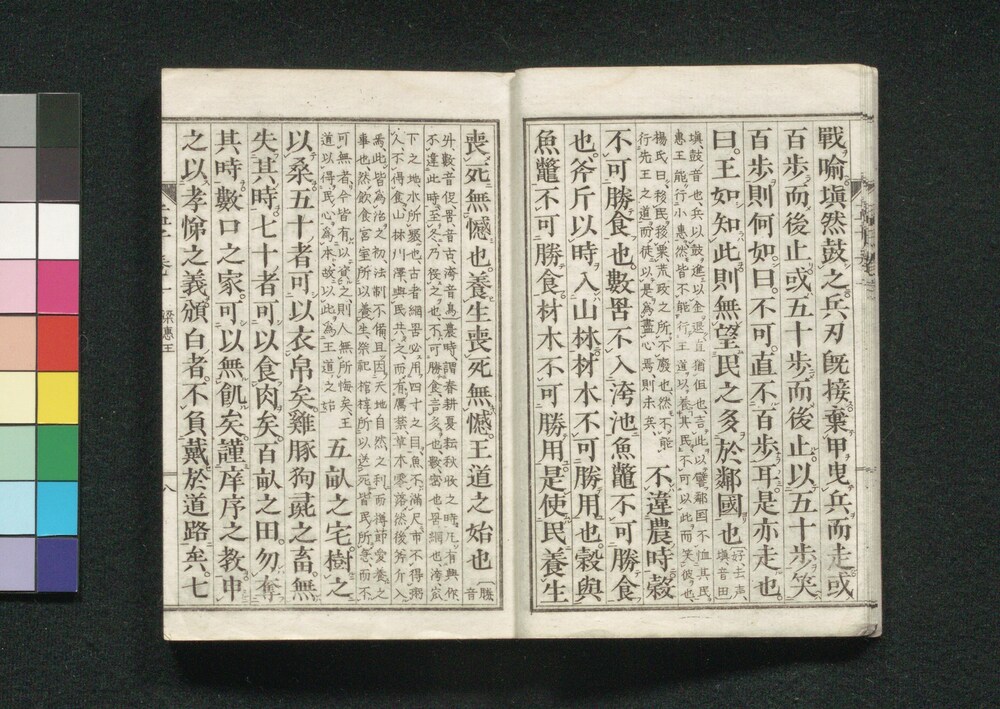 戰喻塡然鼓之兵刃旣接棄甲曳兵而走或
百歩而後止或五十歩而後止以五十歩笑
百歩則何如曰不可直不百歩耳是亦走也
曰王如知此則無望民之多於鄰國也好去聲塡音田
塡鼓音也兵以鼓進以金退直猶但也言此以譬鄰國不恤其民
惠王能行小惠然皆不能行王道以養其民不可以此而笑彼也
楊氏曰移民移粟荒政之所不廢也然不能
行先王之道而徒以是爲盡心焉則未矣
不違農時穀
不可勝食也數罟不入洿池魚鼈不可勝食
也斧斤以時入山林材木不可勝用也穀與
魚鼈不可勝食材木不可勝用是使民養生
喪死無憾也養生喪死無憾王道之始也勝音
外數音促罟音古洿音烏農時謂春耕夏耘秋收之時凡有興作
不違此時至冬乃役之也不可勝食言多也數密也罟網也洿窊
下之地水所聚也古者網罟必用四寸之目魚不滿尺市不得粥
人不得食山林川澤與民共之而有厲禁草木零落然後斧斤入
焉此皆爲治之初法制未備且因天地自然之利而撙節愛養之
事也然飮食宮室所以養生祭祀棺椁所以送死皆民所急而不
可無者今皆有以資之則人無所恨矣王
道以得民心爲本故以此爲王道之始
五畝之宅樹之
以桑五十者可以衣帛矣雞豚狗彘之畜無
失其時七十者可以食肉矣百畝之田勿奪
其時數口之家可以無飢矣謹庠序之教申
之以孝悌之義頒白者不負戴於道路矣七
梁惠王
八